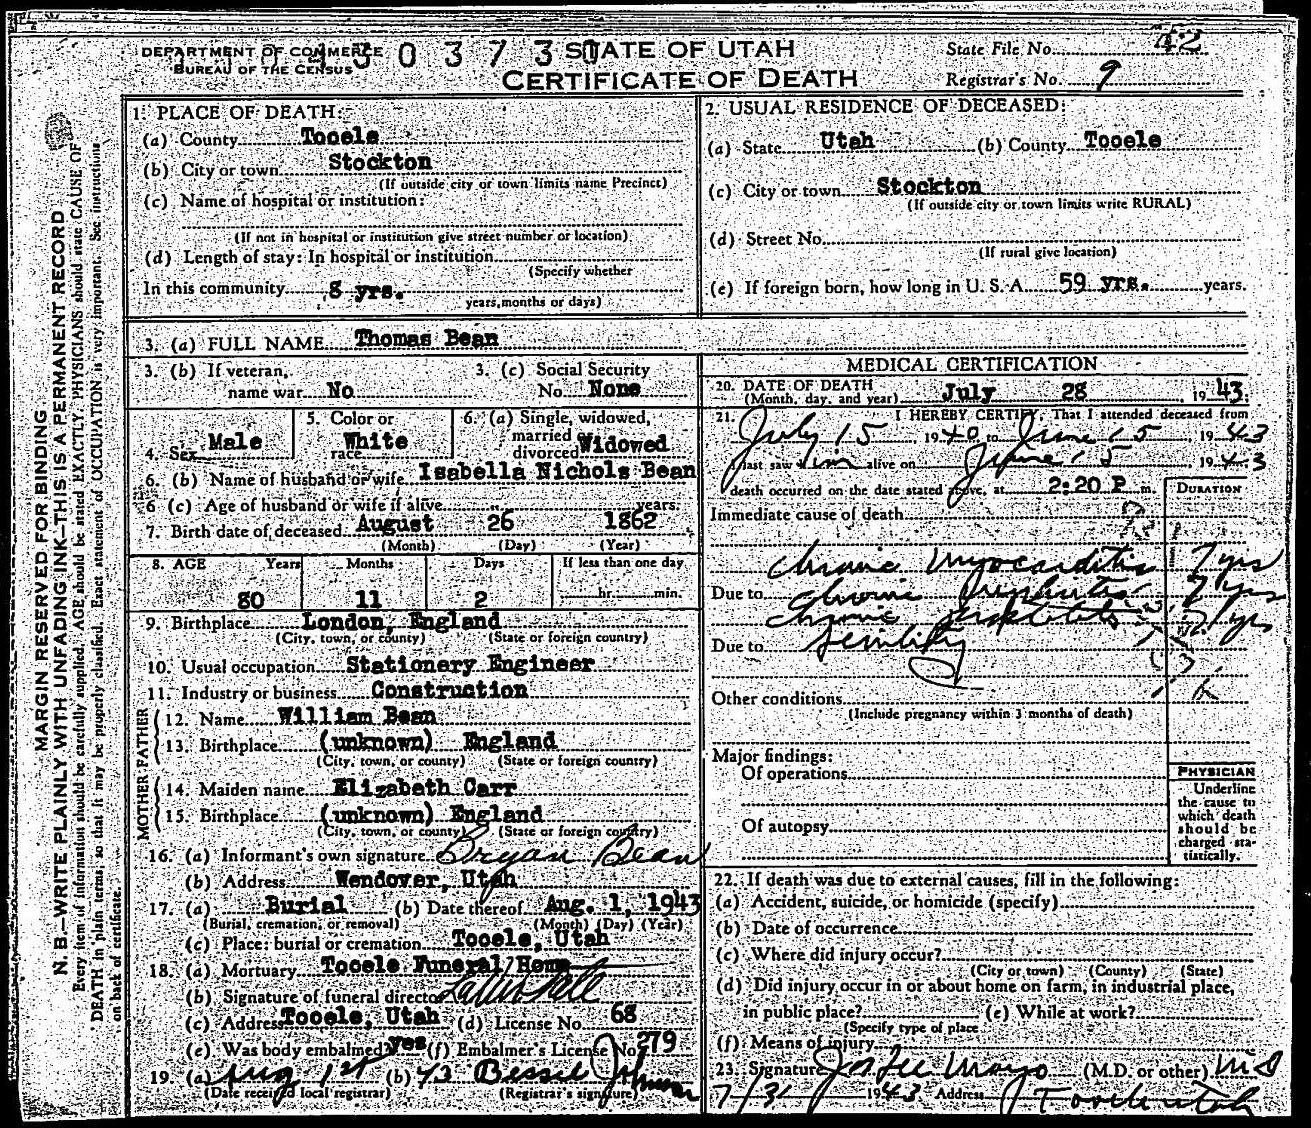 DEPARTMENT OF COMMERCE
BUREAU OF THE CENSUS
STATE OF UTAH
CERTIFICATE OF DEATH
State File No. 42
Registrar's No. 9
MARGIN RESERVED FOR BINDING
N. B.—WRITE PLAINLY WITH UNFADING INK—THIS IS A PERMANENT RECORD
Every item of information should be carefully supplied. AGE should be stated EXACTLY. PHYSICIANS should state CAUSE OF
DEATH in plain terms, so that it may be properly classified. Exact statement of OCCUPATION is very important. See instructions
on back of certificate.
1. PLACE OF DEATH:
(a) County Tooele
(b) City or town Stockton
(If outside city or town limits name Precinct)
(c) Name of hospital or institution:
(If not in hospital or institution give street number or location)
(d) Length of stay: In hospital or institution
(Specify whether
In this community 8 yrs.
years, months or days)
2. USUAL RESIDENCE OF DECEASED:
(a) State Utah (b) County Tooele
(c) City or town Stockton
(If outside city or town limits write RURAL)
(d) Street No.
(If rural give location)
(e) If foreign born, how long in U. S. A. 59 yrs. years.
3. (a) FULL NAME Thomas Bean
3. (b) If veteran,
name war No
3. (c) Social Security
No. None
4. Sex Male
5. Color or
race White
6. (a) Single, widowed,
married
divorced Widowed
6. (b) Name of husband or wife Isabella Nichols Bean
6 (c) Age of husband or wife if alive years.
7. Birth date of deceased August 26 1862
(Month) (Day) (Year)
8. AGE Years Months Days If less than one day
80 11 2 hr. min.
9. Birthplace London, England
(City, town, or county) (State or foreign country)
10. Usual occupation Stationery Engineer
11. Industry or business Construction
FATHER
12. Name William Bean
13. Birthplace (unknown) England
(City, town, or county) (State or foreign country)
MOTHER
14. Maiden name Elizabeth Carr
15. Birthplace (unknown) England
(City, town, or county) (State or foreign country)
16. (a) Informant's own signature Bryan Bean
(b) Address Wendover, Utah
17. (a) Burial (b) Date thereof Aug. 1, 1943
(Burial, cremation, or removal) (Month) (Day) (Year)
(c) Place: burial or cremation Tooele, Utah
18. (a) Mortuary Tooele Funeral Home
(b) Signature of funeral director
(c) Address Tooele, Utah (d) License No. 68
(e) Was body embalmed? yes (f) Embalmer's License No. 279
19. (a) Aug 1st (b) 43 Bessie Johnson
(Date received local registrar) (Registrar's signature)
MEDICAL CERTIFICATION
20. DATE OF DEATH
(Month, day, and year) July 28, 1943.
21. I HEREBY CERTIFY, That I attended deceased from
July 15 1940 to June 15, 1943
I last saw him alive on June 15, 1943
death occurred on the date stated above, at 2:20 P. m.
DURATION
Immediate cause of death
Chronic Myocarditis 7 yrs
Due to Chronic 7 yrs
Chronic 7 yrs
Due to Senility
Other conditions
(Include pregnancy within 3 months of death)
Major findings:
Of operations
Of autopsy
PHYSICIAN
Underline
the cause to
which death
should be
charged sta-
tistically.
22. If death was due to external causes, fill in the following:
(a) Accident, suicide, or homicide (specify)
(b) Date of occurrence
(c) Where did injury occur?
(City or town) (County) (State)
(d) Did injury occur in or about home on farm, in industrial place,
in public place? (e) While at work?
(Specify type of place
(f) Means of injury
23. Signature Mayo (M.D. or other) MD
7/31 1943 Address Tooele Utah